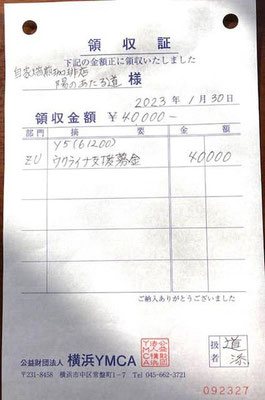 領収証
下記の金額正に領収いたしました
自家焙煎珈琲店
陽のあたる道 様
2023年 1月30日
領収金額 ¥40,000-
部門 摘要 金額
Y5(61200)
EU ウクライナ支援募金 40000
ご納入ありがとうございました
公益財団法人 横浜YMCA
〒231-8458 横浜市中区常盤町1-7 Tel 045-662-3721
扱者
092327